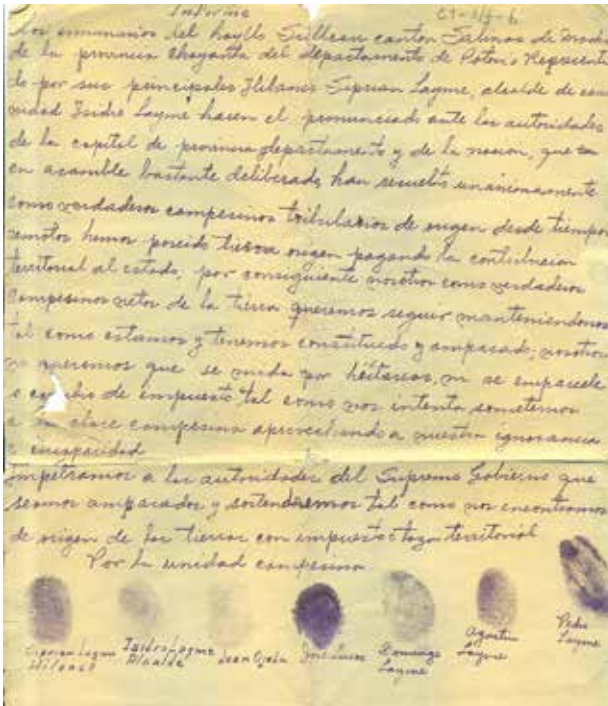 Informe
Los comunarios del hayllo Sullcau canton Salinas de
de la provincia Chayanta del departamento de Potosi Represent
do por sus principales Jilanco Siprian Layme, alcalde de com
nidad Isidro Layme hacen el pronunciado ante las autoridades
de la capital de provincia departamento y de la nacion, que
en asamblea bastante deliberada han resuelto unanimamente
como verdaderos campesinos tributarios de origen desde tiempos
remotos hemos poseido tierra origen pagando la contribucion
territorial al estado, por consiguiente nosotros como verdaderos
campesinos netos de la tierra queremos seguir manteniendonos
tal como estamos y tenemos constituido y amparado; nosotros
no queremos que se mida por héitareas, ni se emparcele
o cambio de impuesto tal como nos intenta someternos
a la clase campesina aprovechando a nuestra ignorancia
e incapacidad
Impetramos a las autoridades del Supremo Gobierno que
seamos amparados y sostendremos tal como nos encontramos
de origen de las tierras con impuesto taza territorial
Por la unidad campesina
Ciprian Layme Jilanco
Isidro Layme Alcalde
Juan
José Lucas
Domingo Layme
Agustin Layme
Pedro Layme